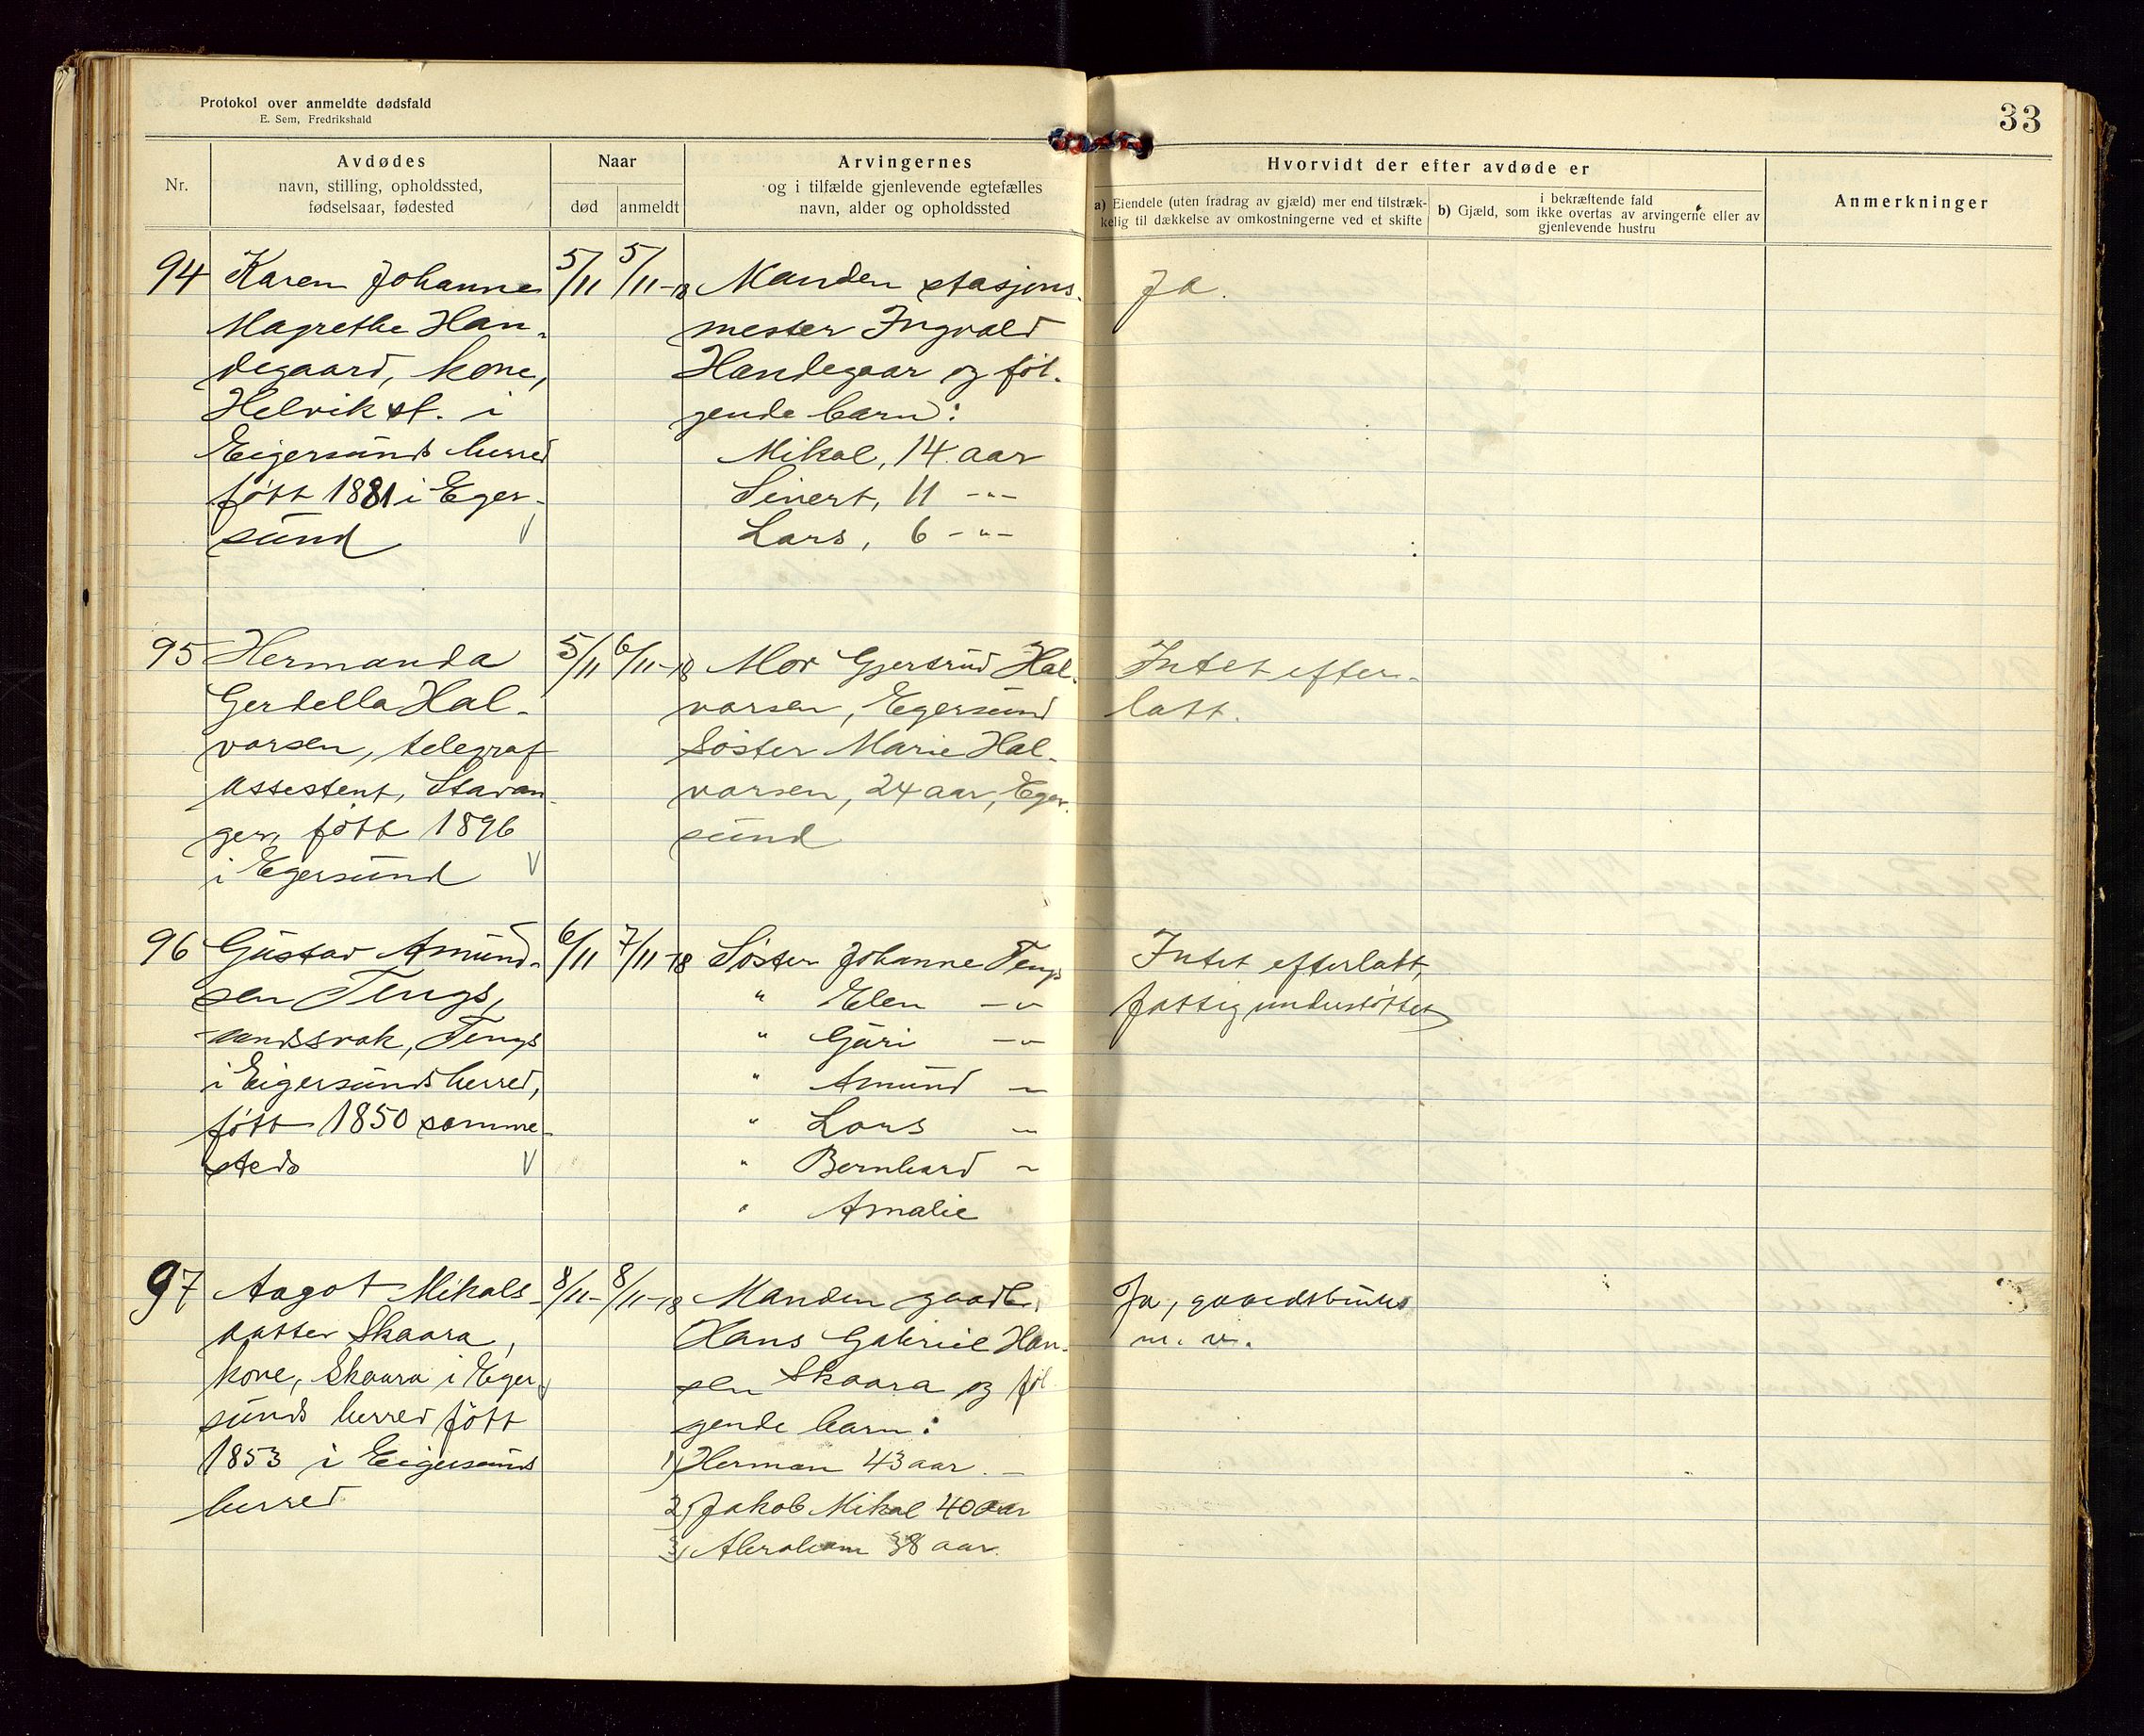 Protokol over anmeldte dødsfald
E. Sem, Fredrikshald
33
Nr.
Avdødes
navn, stilling, opholdssted,
fødselsaar, fødested
Naar
død
anmeldt
Arvingernes
og i tilfælde gjenlevende egtefælles
navn, alder og opholdssted
Hvorvidt der efter avdøde er
a) Eiendele (uten fradrag av gjæld) mer end tilstræk-
kelig til dækkelse av omkostningerne ved et skifte
b) Gjæld, som i bekræftende fald ikke overtas av arvingerne eller av
gjenlevende hustru
Anmerkninger
94
Karen Johanne
Magrethe Han-
degaard, kone,
Helvik st. i
Eigersunds herred
født 1881 i Eger-
sund
5/11
5/11-18
Manden stasjons-
mester Ingvald
Handegaar og føl-
gende barn:
Mikal, 14 aar
Sivert, 11 -"-
Lars, 6 -"-
Ja.
95
Hermanda
Gerdella Hal-
vorsen, telegraf
assestent, Stavan-
ger, født 1896
i Egersund
5/11
6/11-18
Mor Gjertrud Hal-
vorsen, Egersund
Søster Marie Hal-
vorsen, 24 aar, Eger-
sund
Intet efter-
latt.
96
Gustav Amund-
sen Tengs,
aandssvak, Tengs
i Eigersunds herred,
født 1850 samme-
steds
6/11
7/11-18
Søster Johanne Tengs
" Elen -"-
" Guri -"-
" Amund -
" Lars -
" Bernhard -
" Amalie
Intet efterlatt,
fattigunderstøttet
97
Aagot Mikals-
datter Skaara,
kone, Skaara i Eger-
sunds herred født
1853 i Eigersunds
herred
8/11-
8/11-18
Manden gaardb.
Hans Gabriel Han-
sen Skaara og føl-
gende barn:
1) Herman 43 aar. -
2) Jakob Mikal 40 aar
3) Abraham 38 aar.
Ja, gaardsbruk
m. v.